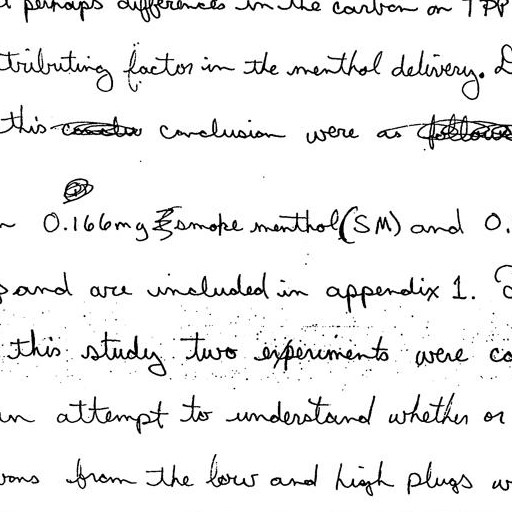 perhaps differences in the carbon on TPP
tributing factor in the menthol delivery.
this conclusion were as follows
0.166mg smoke menthol (SM) and 0.
and are included in appendix 1.
this study two experiments were co
an attempt to understand whether or
from the low and high plugs w